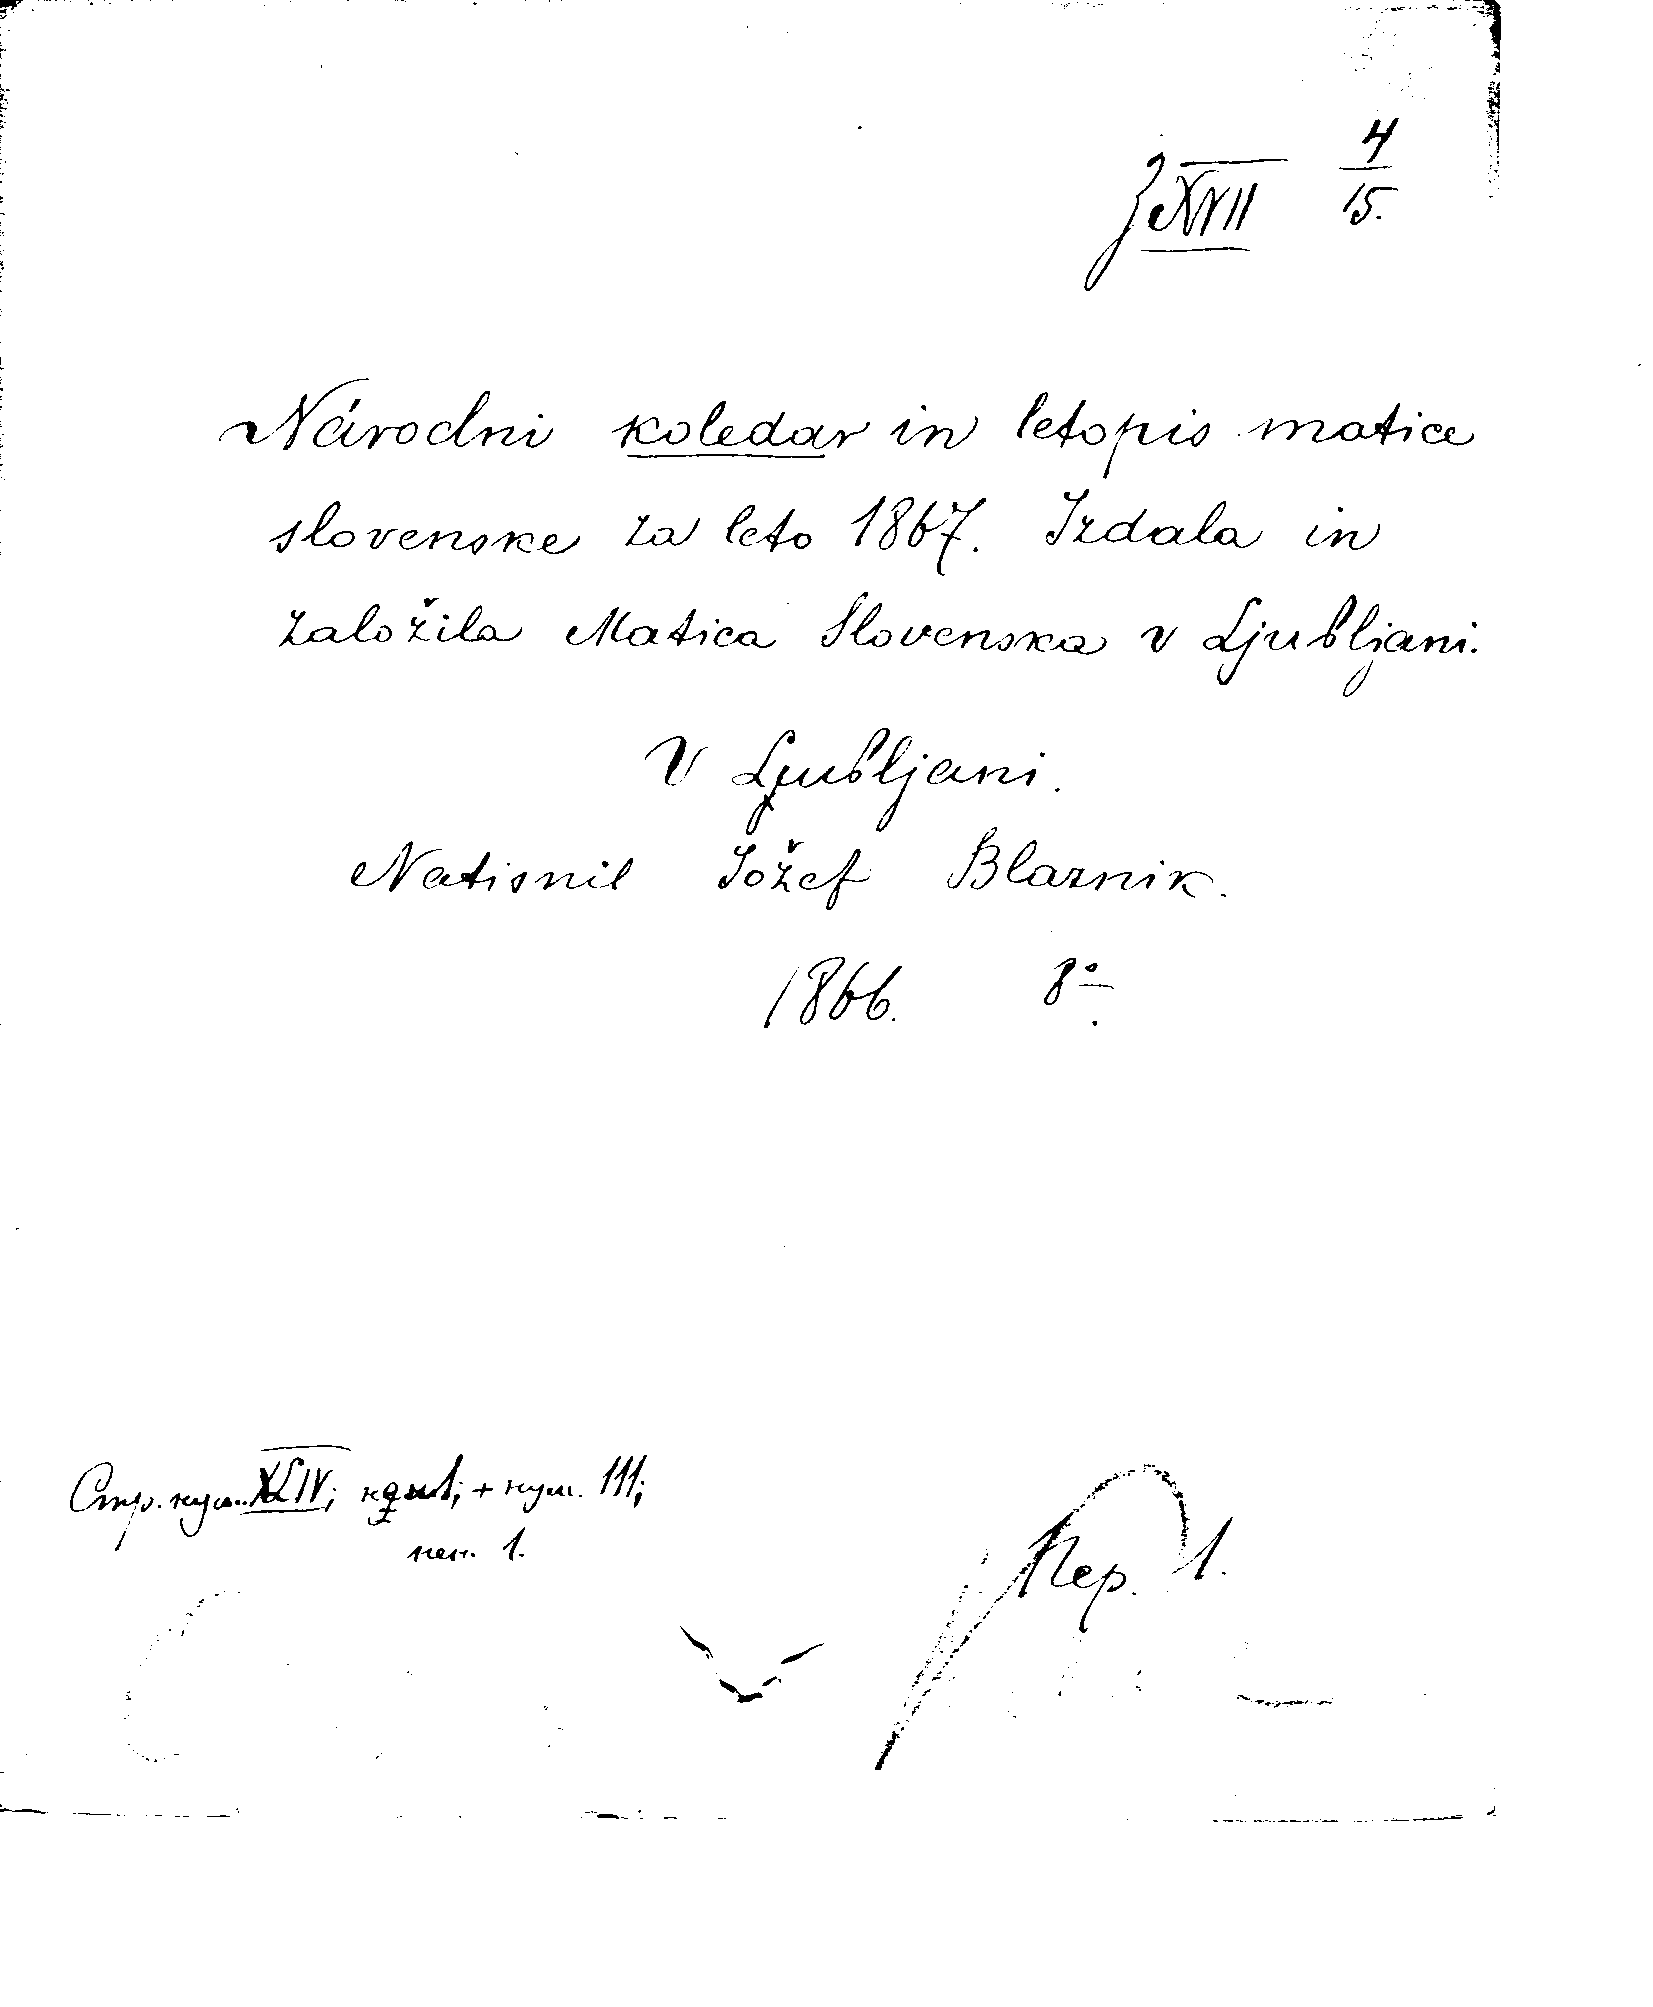 З XVII 4/15.
Národni koledar in letopis matice
slovenske za leto 1867. Izdala in
založila Matica Slovenska v Ljubljani.
V Ljubljani.
Natisnil Jožef Blaznik.
1866. 8º
Стр. нум. XLIV; + нум. 111;
нен. 1.
Пер. 1.